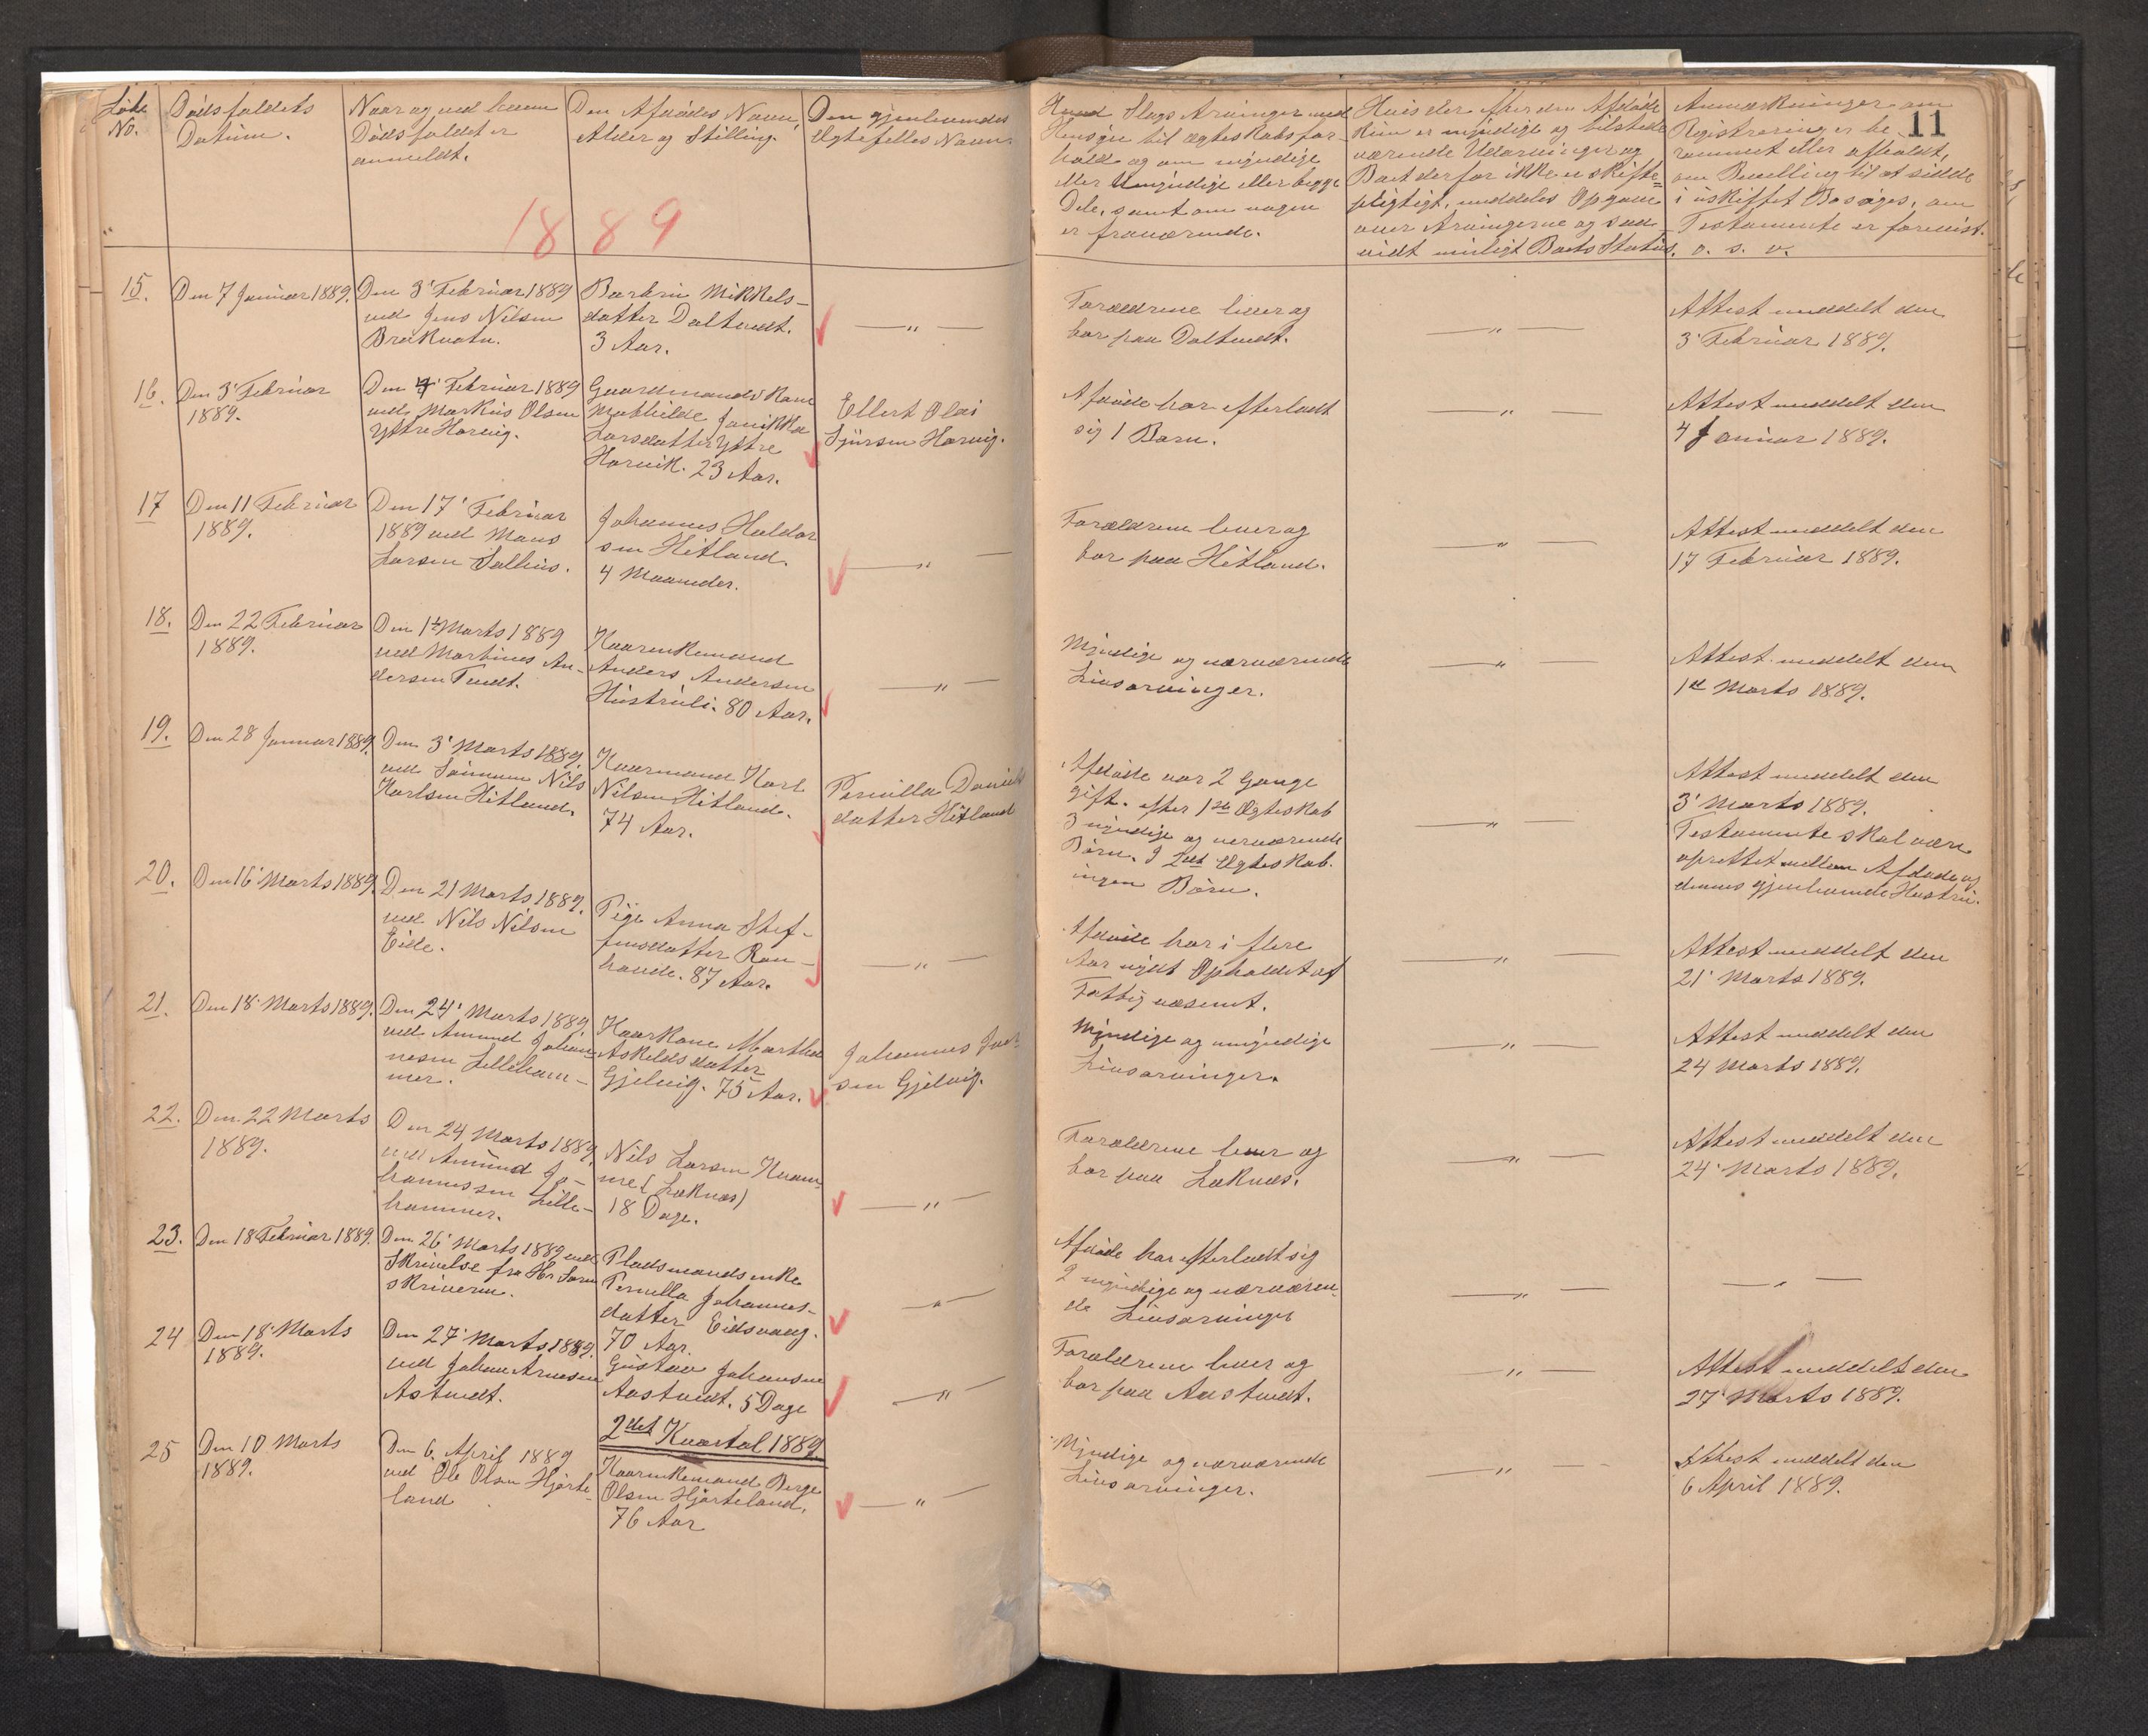 Löbe No.
Dödsfaldets
Datum.
Naar og ved hvem
Dödsfaldet er
anmeldt.
Den Afdödes Navn,
Alder og Stilling.
Den gjenlevendes
Ægtefelles Navn.
Hvad Slags Arvinger med
Hensyn til Ægteskabsfor-
hold og om myndige
eller Umyndige eller begge
Dele, samt om nogen
er fraværende.
Hvis der efter den Afdöde
kun er myndige og tilstede
værende Udarvinger og
Boet derfor ikke er skifte=
pligtigt, meddeles Opgave
over Arvingerne og saa
vidt muligt Boets Status.
Anmærkninger om
Registrering er be-
rammet eller afholdt,
om Bevilling til at sidde
i uskiftet Bo söges, om
Testamente er forevist.
o. s. v.
11
1889
15.
Den 7 Januar 1889.
Den 3' Februar 1889
ved Jens Nilsen
Brækvatn.
Barbru Mikkels-
datter Daltvedt.
3 Aar.
— „ —
Forældrene lever og
bor paa Daltvedt.
— „ —
Attest meddelt den
3' Februar 1889.
16.
Den 3' Februar
1889.
Den 4' Februar 1889
ved Markus Olsen
Yttre Horvig.
Gaardmands Kone
Mathilde Janikka
Larsdatter Yttre
Horvik. 23 Aar.
Ellert Olai
Sjursen Horvig.
Afdöde har efterladt
sig 1 Barn.
— „ —
Attest meddelt den
4 Januar 1889.
17
Den 11 Februar
1889.
Den 17' Februar
1889 ved Mons
Larsen
Johannes Haldor
sen Hitland.
4 Maaneder.
— „ —
Forældrene lever og
bor paa Hitland.
— „ —
Attest meddelt den
17 Februar 1889.
18.
Den 22 Februar
1889.
Den 1ste Marts 1889
ved Martinus An-
dersen Tvedt.
Kaarenkemand
Anders Andersen
Hustruli. 80 Aar.
— „ —
Myndige og nærværende
Livsarvinger.
— „ —
Attest meddelt den
1ste Marts 1889.
19.
Den 28 Januar 1889.
Den 3' Marts 1889.
ved Sönnen Nils
Karlsen Hitland.
Kaarmand Karl
Nilsen Hitland.
74 Aar.
Pernilla Daniels
datter Hitland
Afdöde var 2 Gange
gift. efter 1ste Ægteskab
3 myndige og nærværende
Börn. I 2det Ægteskab.
ingen Börn.
— „ —
Attest meddelt den
3' Marts 1889.
Testamente skal være
oprettet mellem Afdöde og
dennes gjenlevende Hustru.
20.
Den 16' Marts 1889.
Den 21 Marts 1889.
ved Nils Nilsen
Eide.
Pige Anna Stef-
fensdatter Ran-
haude. 87 Aar.
— „ —
Afdöde har i flere
Aar nydt Opholdet af
Fattigvæsenet.
— „ —
Attest meddelt den
21' Marts 1889.
21.
Den 18' Marts 1889.
Den 24' Marts 1889.
ved Amund Johan-
nesen Lilleham-
mer.
Kaarkone Martha
Askeldsdatter
Gjelvig. 75 Aar.
Johannes
sen Gjelvig.
Myndige og umyndige
Livsarvinger.
— „ —
Attest meddelt den
24 Marts 1889.
22.
Den 22 Marts
1889.
Den 24 Marts 1889.
ved Amund Jo-
hannessen Lille-
hammer.
Nils Larsen Kvam-
me (Løknæs)
18 Dage.
— „ —
Forældrene lever og
bor paa Løknæs.
— „ —
Attest meddelt den
24' Marts 1889.
23.
Den 18 Februar 1889.
Den 26' Marts 1889 ved
Skrivelse fra Hr Soren
skriveren.
Pladsmandsenke
Pernilla Johannes-
datter Eidsvaag.
70 Aar.
— „ —
Afdöde har efterladt sig
2 myndige og nærværen-
de Livsarvinger
— „ —
— „ —
24
Den 18' Marts
1889.
Den 27' Marts 1889.
ved Johan Arnesen
Astvedt.
Gustav Johansen
Aastvedt. 5 Dage
— „ —
Forældrene lever og
bor paa Aastvedt.
— „ —
Attest meddelt den
27' Marts 1889.
2det Kvartal 1889.
25
Den 10 Marts
1889.
Den 6 April 1889
ved Ole Olsen Hjorte-
land
Kaarenkemand Berge
Olsen Hjorteland,
76 Aar
— „ —
Myndige og nærværende
Livsarvinger.
— „ —
Attest meddelt den
6 April 1889.